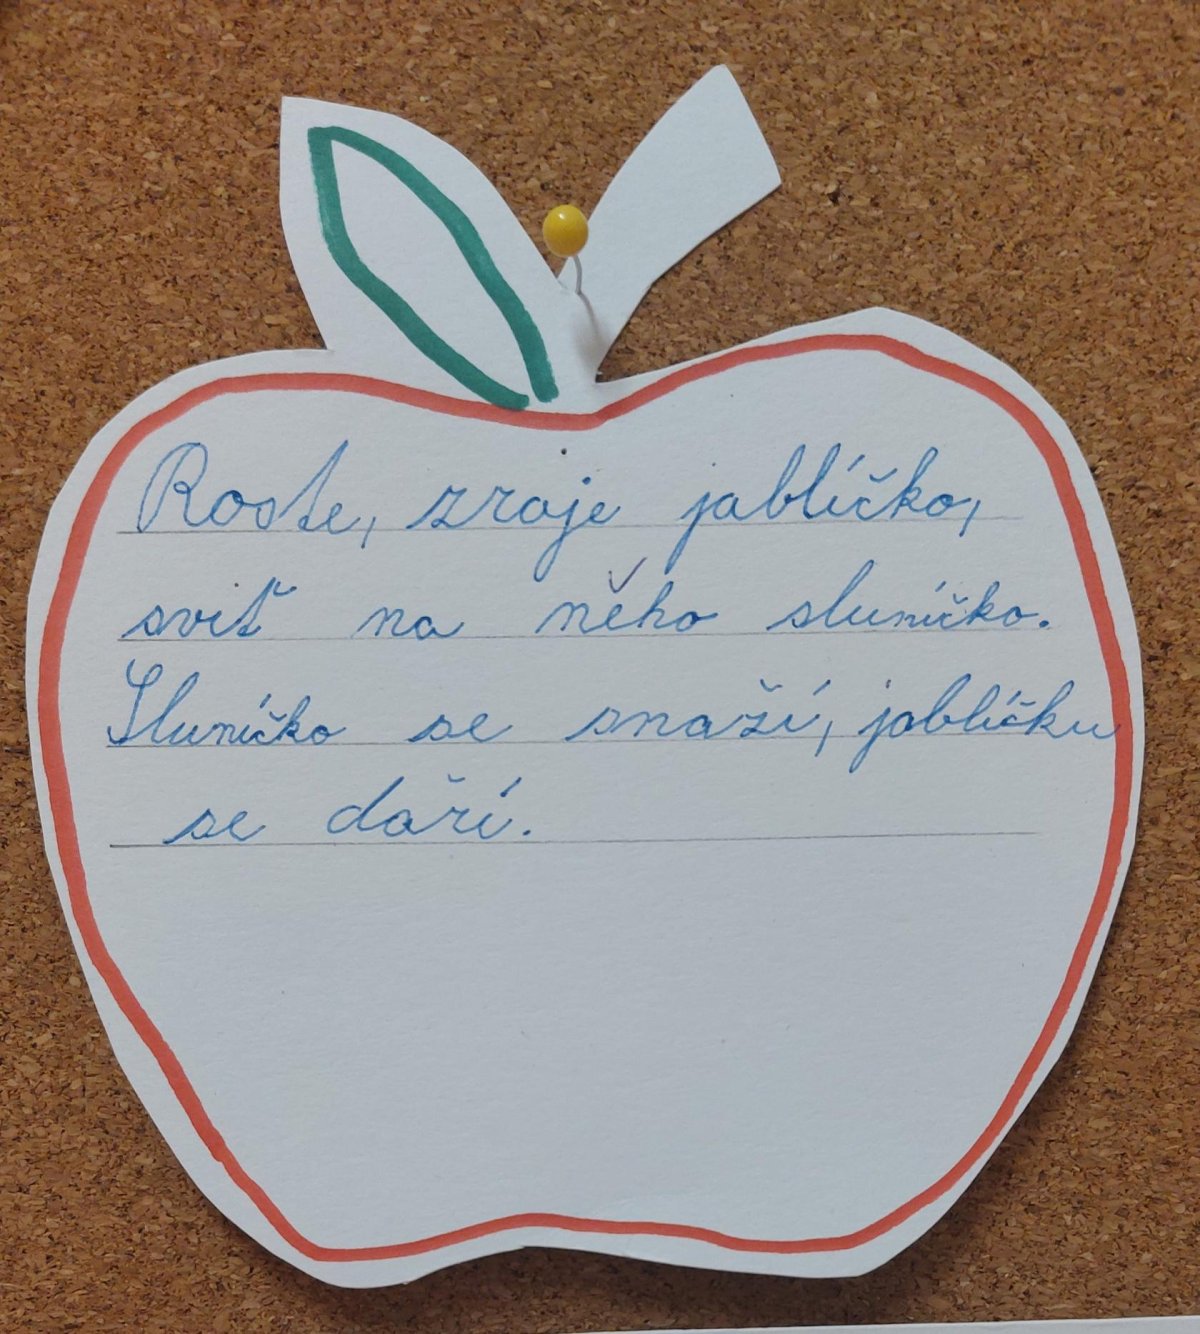 Roste, zraje jablíčko,
sviť na něho sluníčko.
Sluníčko se snaží, jablíčku
se daří.